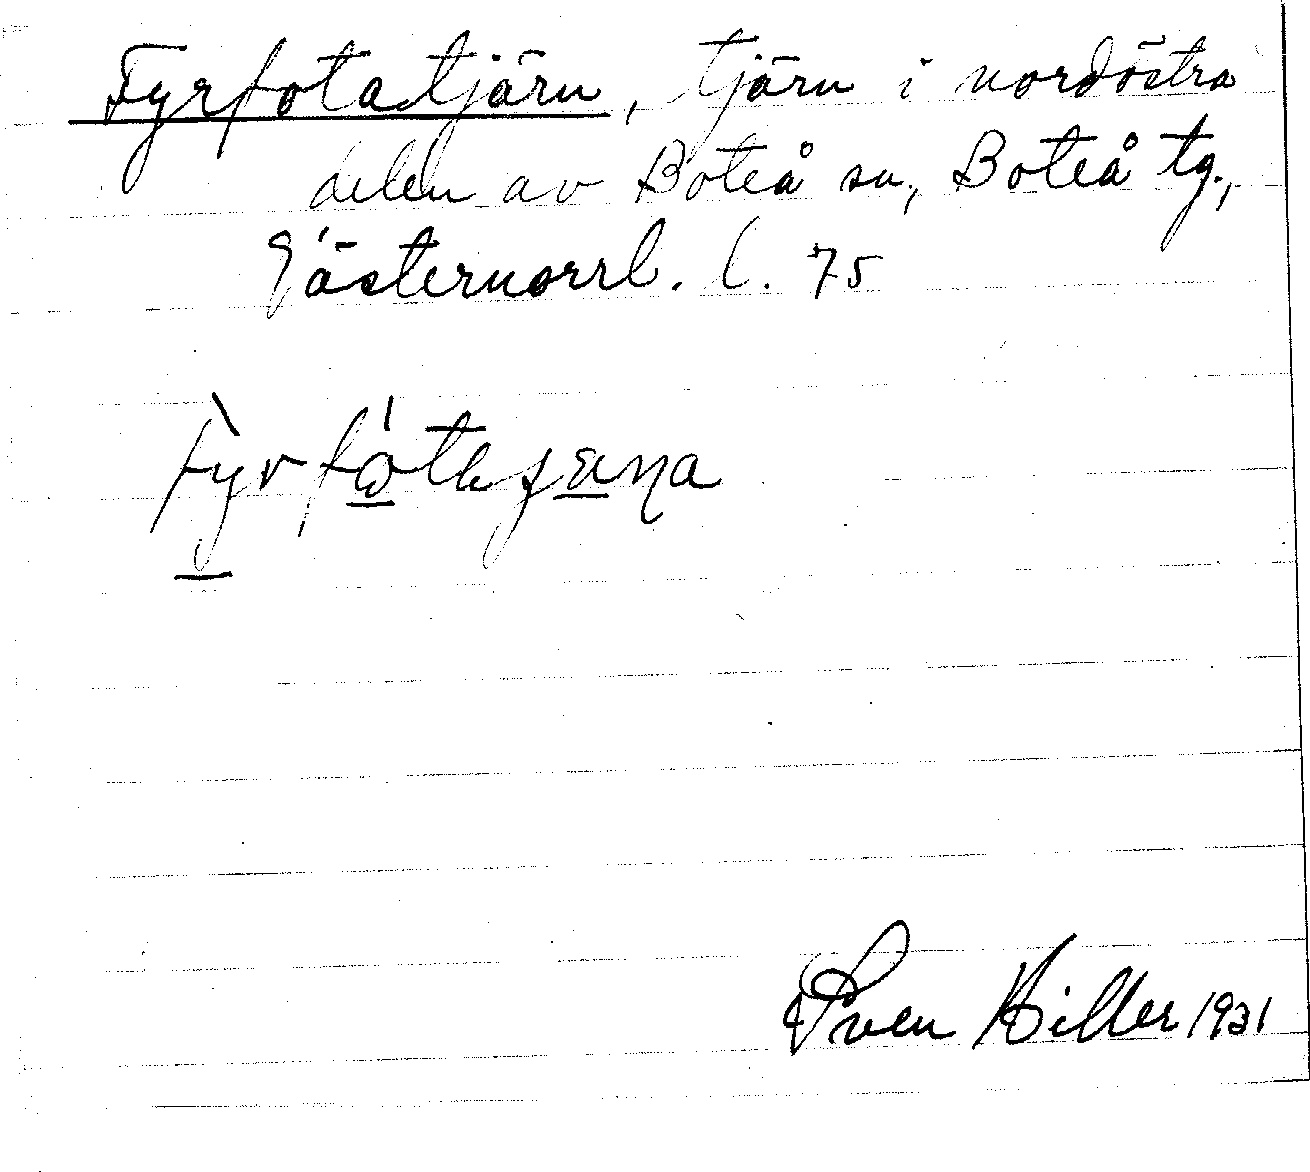 Fyrfotatjärn, tjärn i nordöstra
delen av Boteå sn, Boteå tg.,
Västernorrl. l. 75
Sven Hiller 1931